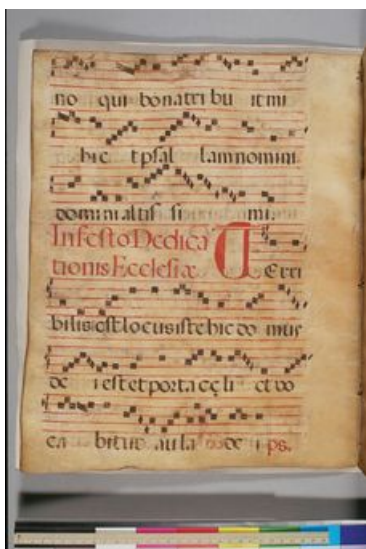 no qui bona tri bu it mi
hi c et psal lam nomini
domini altis si mi.
In festo Dedica
tionis Ecclesiæ T Erri
bilis est locus iste hic do mus
de i est et porta cęli et vo
ca bitur aula de i ps.